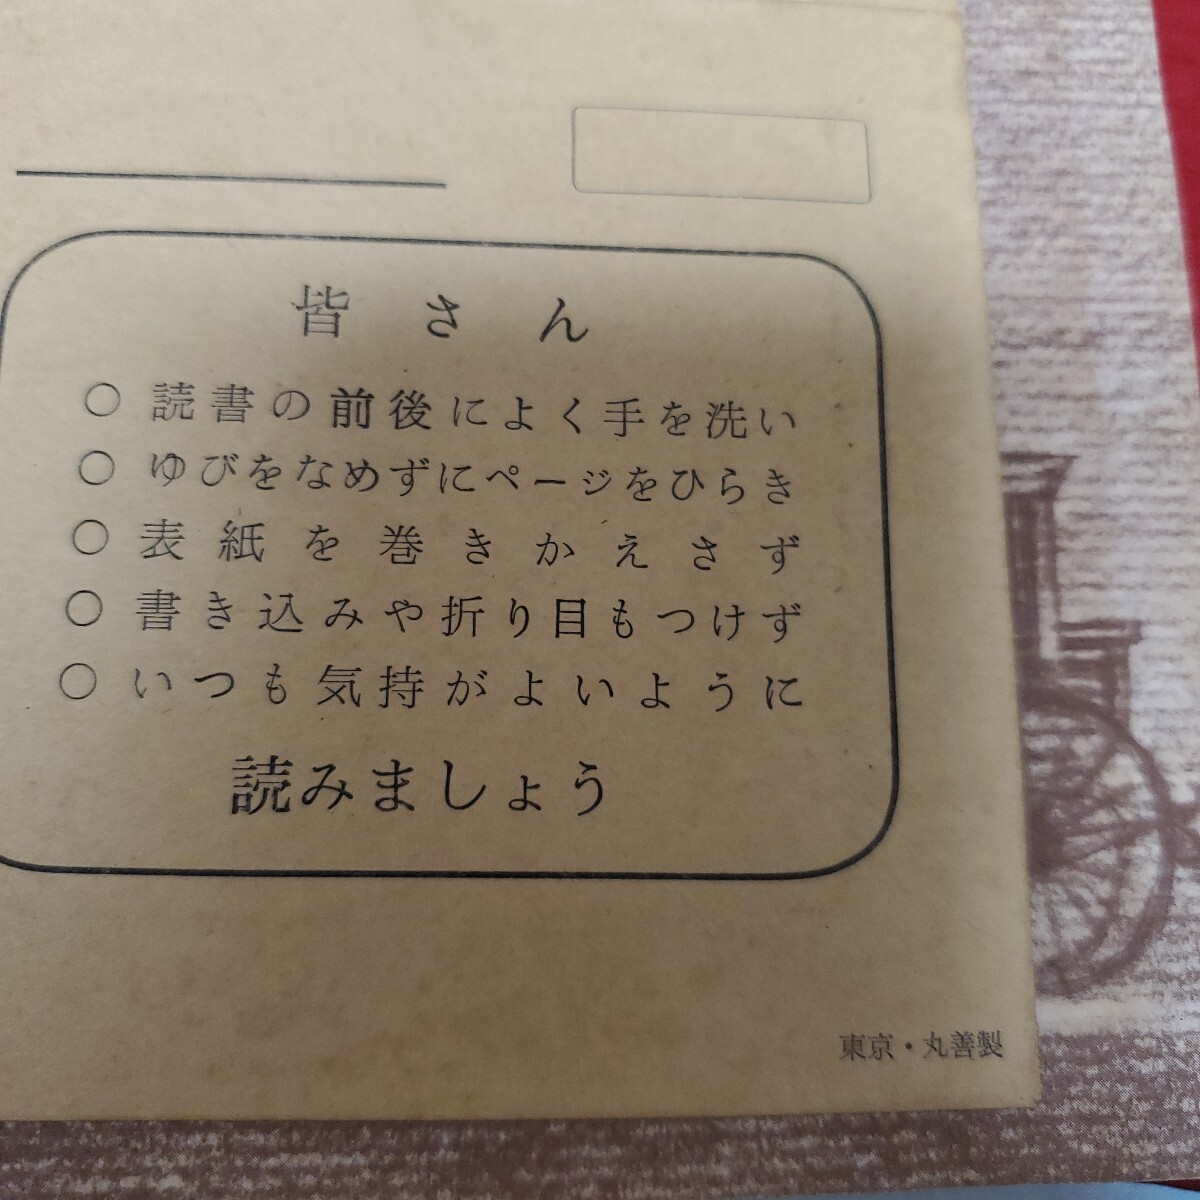 皆さん
○ 読書の前後によく手を洗い
○ ゆびをなめずにページをひらき
○ 表紙を巻きかえさず
○ 書き込みや折り目もつけず
○ いつも気持がよいように
読みましょう
東京・丸善製